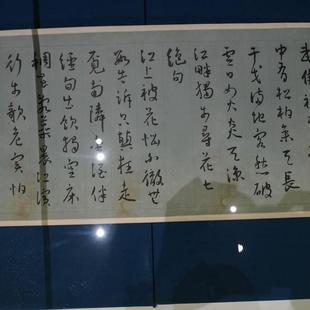 武侯祠
中有松柏參天長
干戈滿地客愁破
雲日如火炎天涼
江畔獨步尋花七
絕句
江上被花惱不徹無
處告訴只顛狂走
覓南鄰愛酒伴
經旬出飲獨空床
稠花亂蕊裹江濱
行步欹危實怕